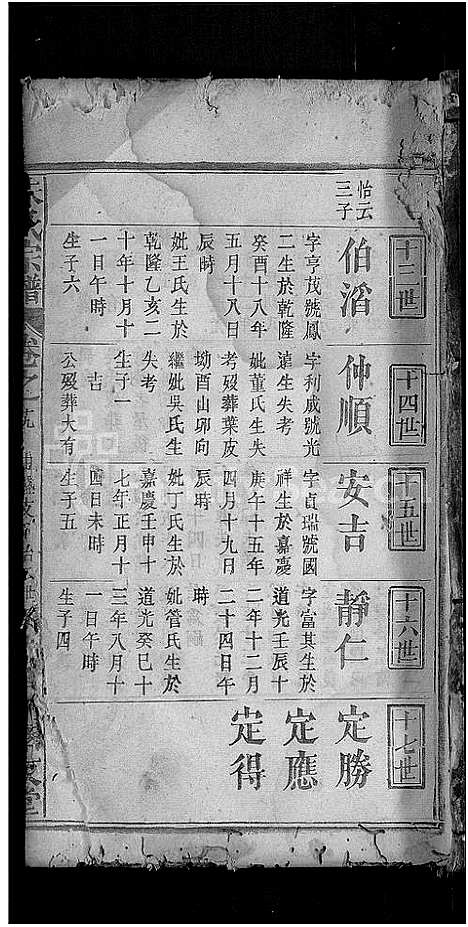 十三世
十四世
十五世
十六世
十七世
怡云
三子
伯滔
字亨茂號鳳
二生於乾隆
癸酉十八年
五月十八日
辰時
妣王氏生於
乾隆乙亥二
十年十月十
一日午時
生子六
仲順
字利威號光
遠生失考
妣董氏生失
考歿葬葉皮
坳酉山卯向
繼妣吳氏生
失考
生子一
吉
公歿葬大有
安吉
字貞瑞號國
祥生於嘉慶
庚午十五年
四月十九日
辰時
妣丁氏生於
嘉慶壬申十
七年正月十
四日未時
生子五
靜仁
字富其生於
道光壬辰十
二年十二月
二十四日午
時
妣管氏生於
道光癸巳十
三年八月十
一日午時
生子四
定勝
定應
定得
氏宗譜
卷之
堂